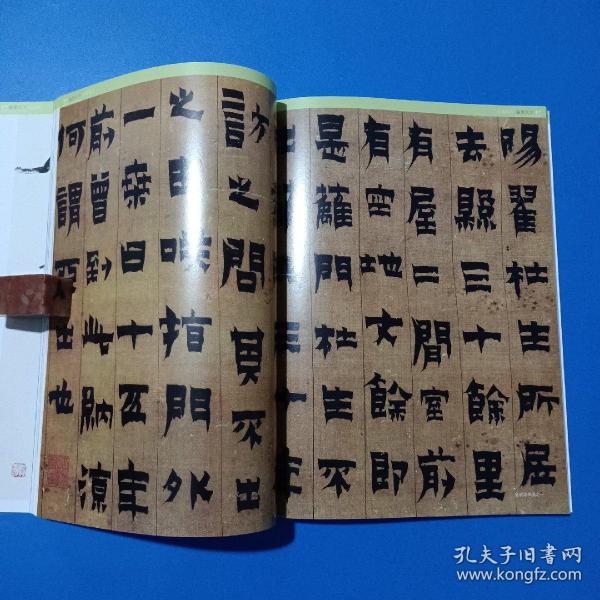 陽翟杜生所居
去縣三十餘里
有屋二間室前
有空地丈餘即
是籬門杜生不
三十年
訪之問其不出
之由咲指門外
一桒曰十五年
前曾到此納涼
何謂不出也
孔夫子旧书网
www.kongfz.com